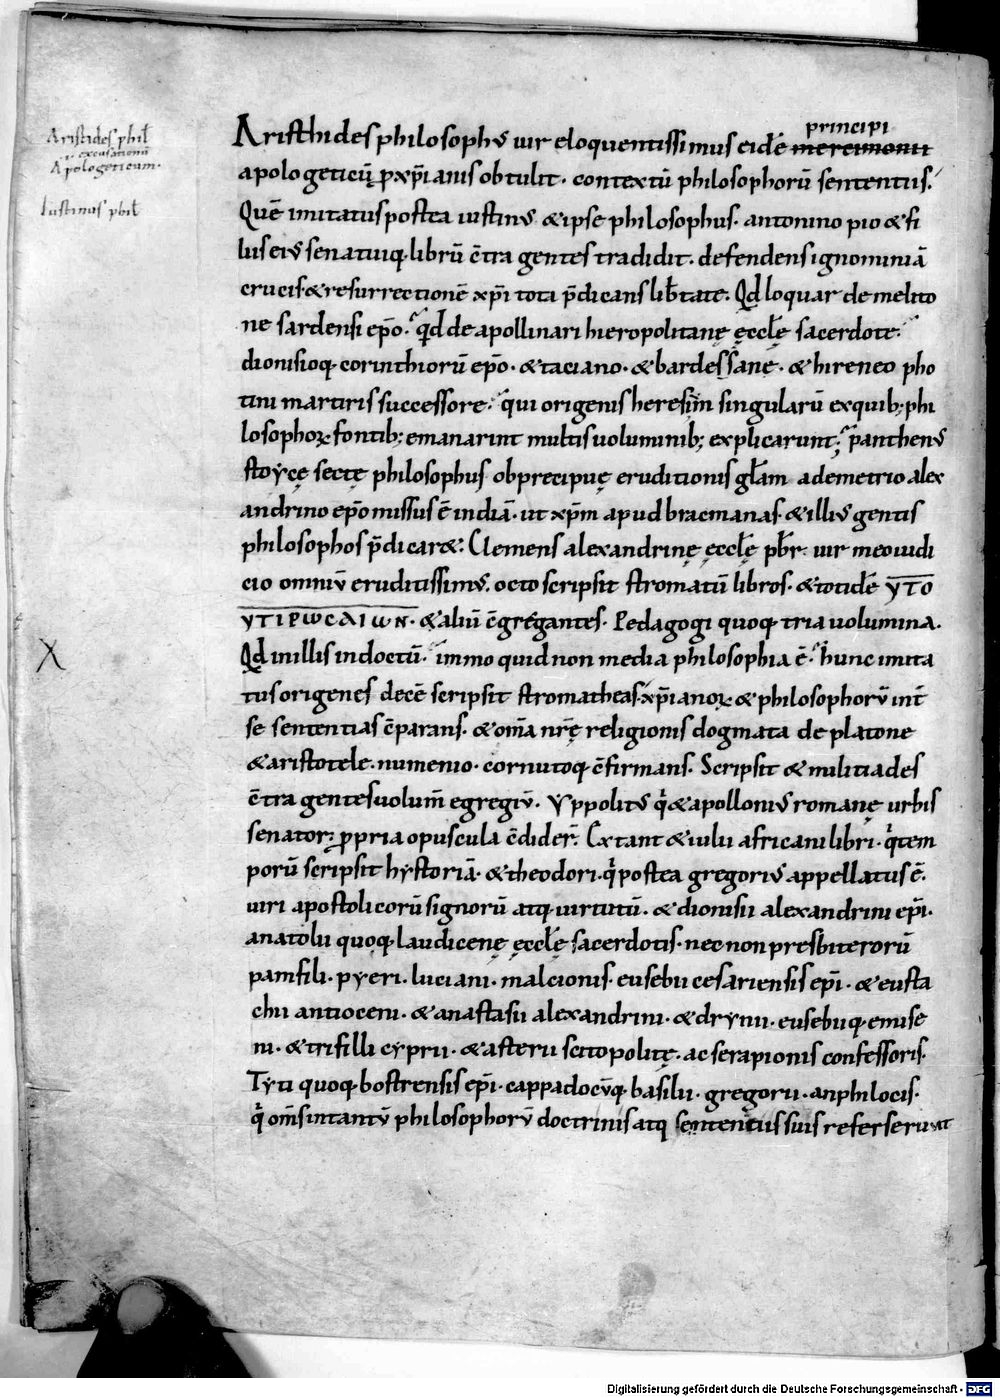 Aristides phil̄
i. excusationū
Apologeticum.
Iustinus phil̄
principi
Aristhides philosophus uir eloquentissimus eidē mercimonii
apologeticū p xp̄ianis obtulit. contextū philosophorū sententiis.
Quē imitatus postea iustinus & ipse philosophus. antonino pio & fi
liis eius senatuiq; librū c̄tra gentes tradidit. defendens ignominiā
crucis. & resurrectionē xp̄i tota p̄dicans lib̄tate. Qd loquar de melito
ne sardensi ep̄o. qd de apollinari hieropolitanę ęccłę sacerdote.
dionisioq; corinthiorū ep̄o. & taciano. & bardessane. & hireneo pho
tini martiris successore. qui origenis heresim singularū ex quib; phi
losophoꝝ fontib; emanarint multis uoluminib; explicarunt. panthenus
stoycę sectę philosophus ob precipuę eruditionis głam a demetrio alex
andrino ep̄o missus ē indiā. ut xp̄m apud bracmanas. & illius gentis
philosophos p̄dicar&. Clemens alexandrinę ęccłę pb̄r. uir meo iudi
cio omniū eruditissimus. octo scripsit stromatū libros. & totidē ΥΤΟ
ΥΤΙΡωCΑΙωΝ. & aliū c̄gregantes. Pedagogi quoq; tria uolumina.
Qd in illis indoctū. immo quid non media philosophia ē. hunc imita
tus origenes decē scripsit stromatheas. xp̄ianoꝝ & philosophorū int̄
se sententias c̄parans. & om̄a nr̄ę religionis dogmata de platone
& aristotele. numenio. cornutoq; c̄firmans. Scripsit & militiades
c̄tra gentes uolum̄ egregiū. yppolitus q̄ & apollonius romanę urbis
senator. ppria opuscula c̄dider̄. Extant & iulii africani libri. q̄ tem
porū scripsit hystoriā. & theodori. q̄ postea gregorius appellatus ē.
uiri apostolicorū signorū atq; uirtutū. & dionisii alexandrini ep̄i.
anatolii quoq; laudicenę ęccłę sacerdotis. nec non presbiterorū
pamfili. pyeri. luciani. malcionis. eusebii cesariensis ep̄i. & eusta
chii antioceni. & anastasii alexandrini. & drynii. eusebiiq; emise
ni. & trifilli cyprii. & asterii scitopolitę. ac serapionis confessoris.
Tyti quoq; bostrensis ep̄i. cappadocūq; basilii. gregorii. anphilocis.
q̄ om̄s intantū philosophorū doctrinis atq; sententiis suis referserunt
X
Digitalisierung gefördert durch die Deutsche Forschungsgemeinschaft - DFG